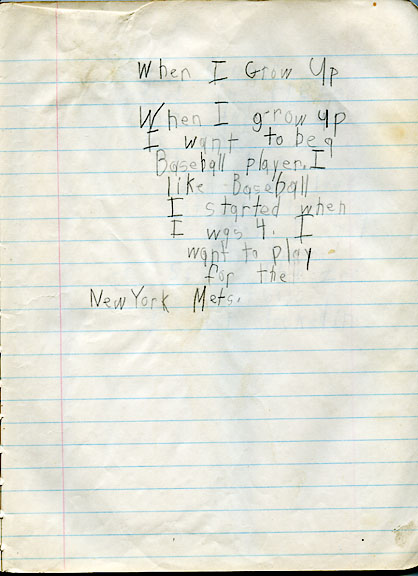 When I Grow Up
When I grow up
I want to be a
Baseball player. I
like Baseball
I started when
I was 4. I
want to play
for the
New York Mets.